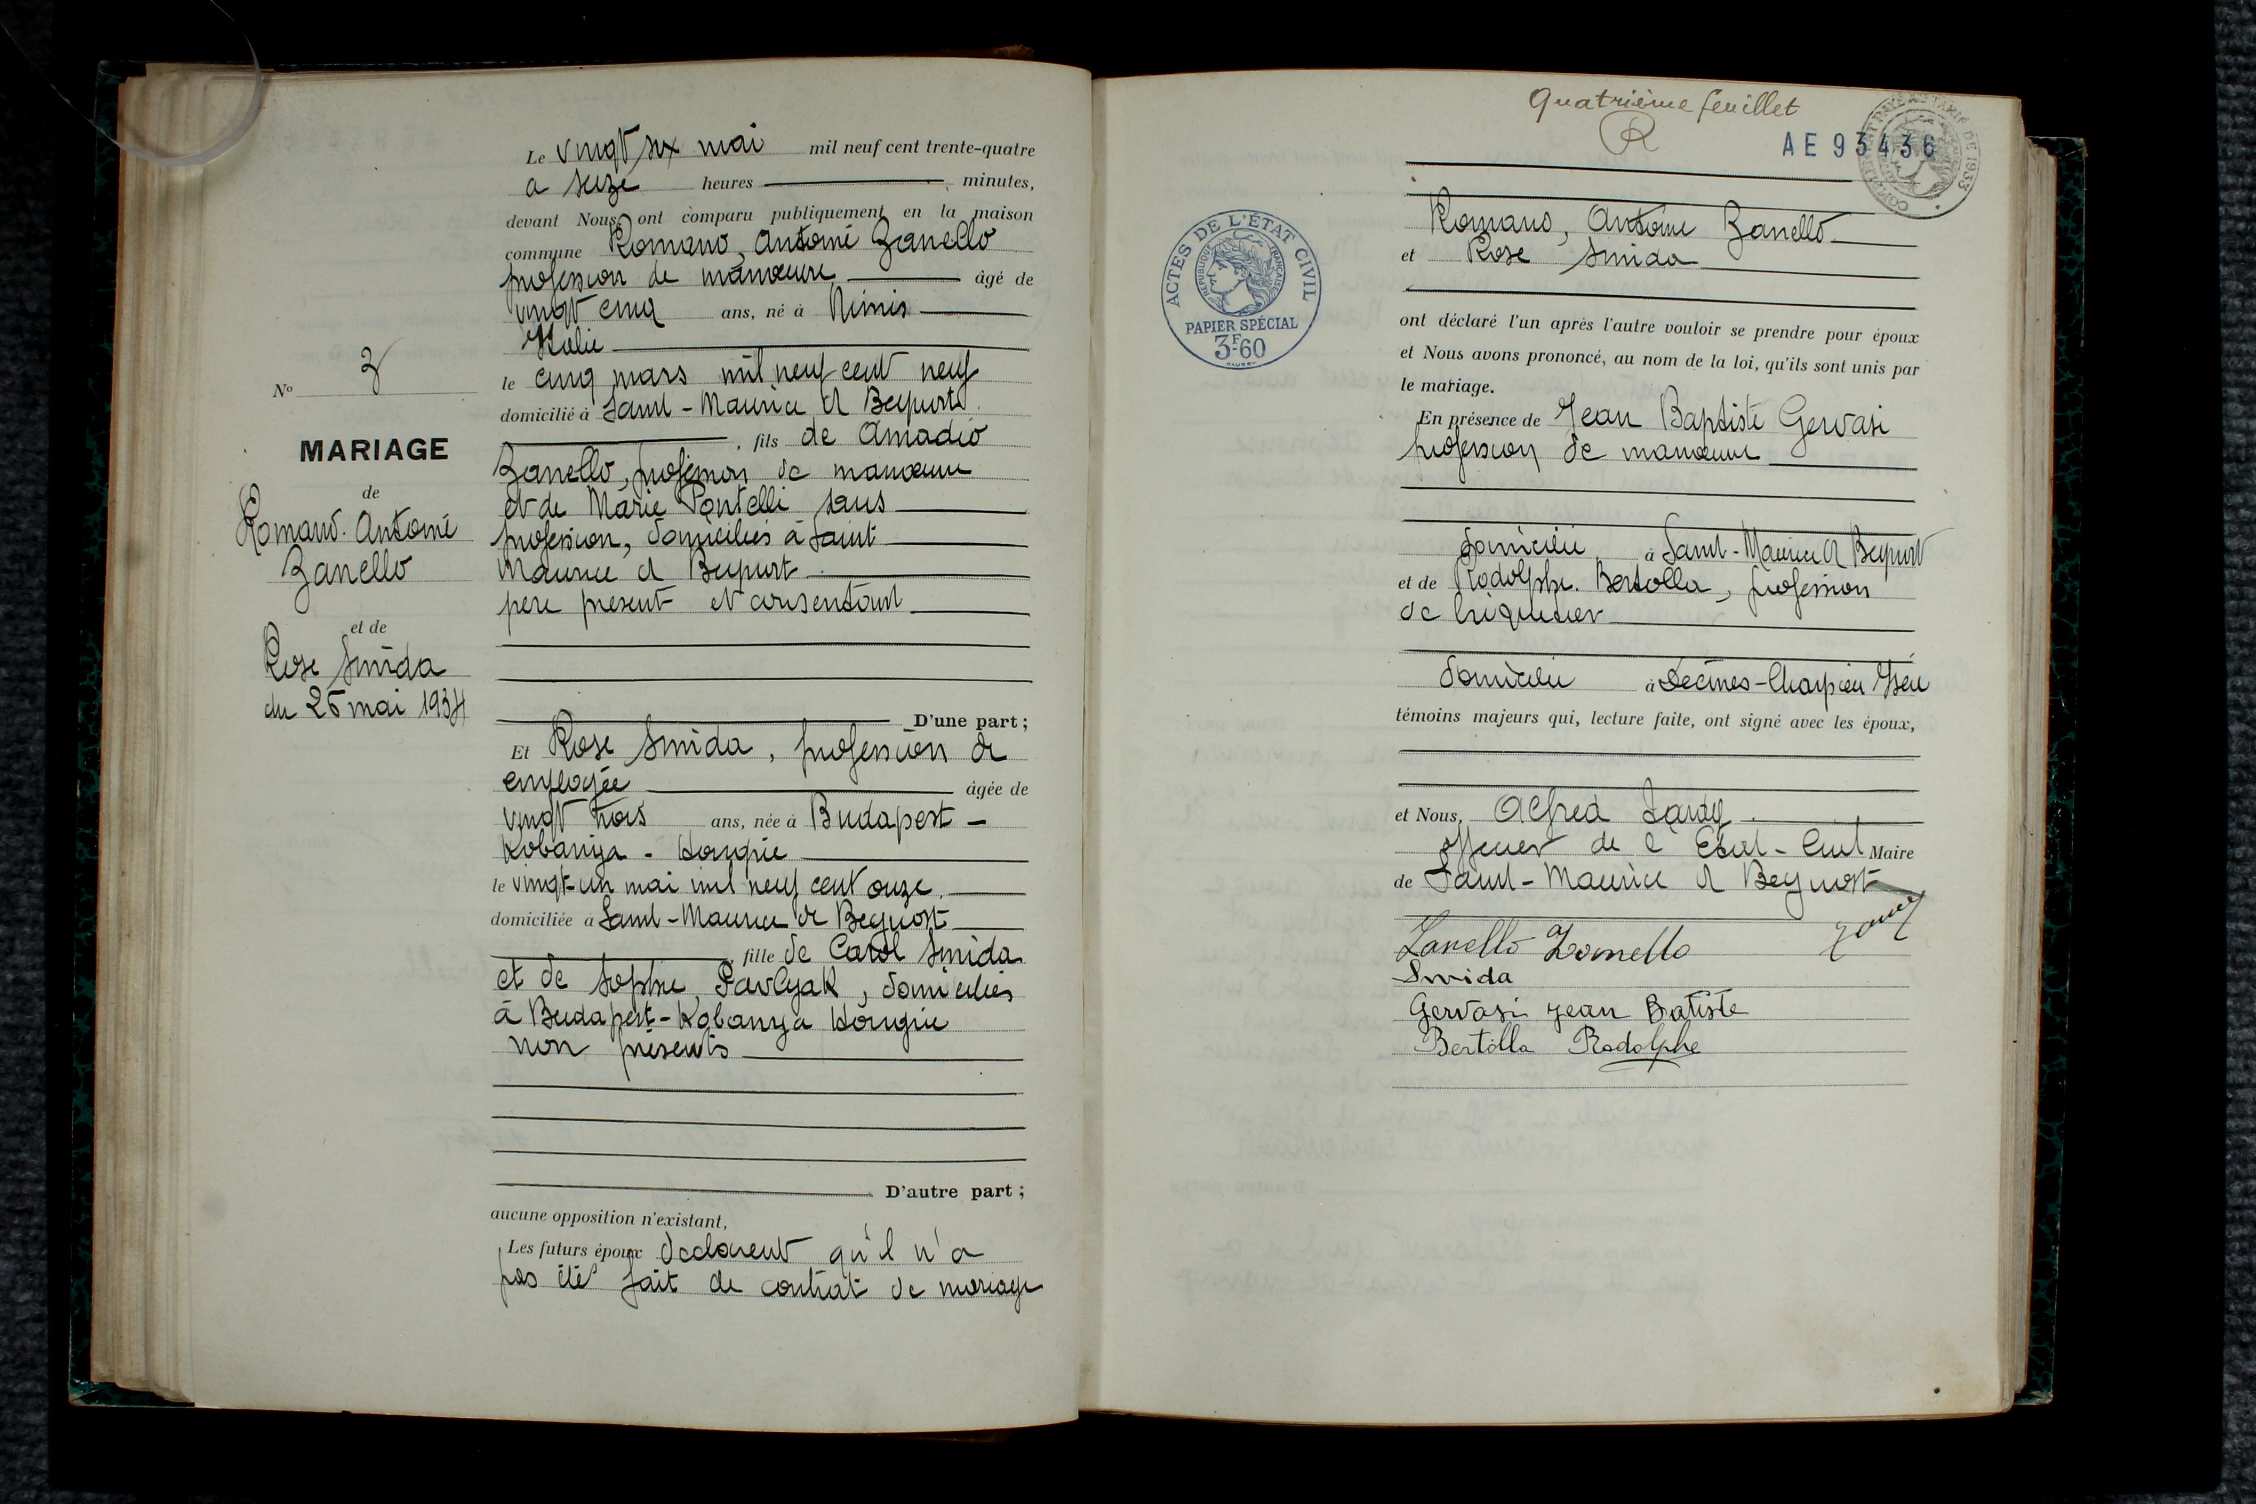 Le vingt six mai mil neuf cent trente-quatre
a seize heures minutes,
devant Nous, ont comparu publiquement en la maison
commune Romano, Antoine Zanello
profession de manœuvre âgé de
vingt cinq ans, né à Nimis
Italie
le cinq mars mil neuf cent neuf
domicilié à Saint-Maurice de Beynost
, fils de Amadio
Zanello, profession de manœuvre
et de Marie Pontelli sans
profession, domiciliés à Saint
Maurice de Beynost
père présent et consentant
D'une part ;
Et Rose Smida, profession de
employée âgée de
vingt trois ans, née à Budapest -
Kobanya - Hongrie
le vingt-un mai mil neuf cent onze.
domiciliée à Saint-Maurice de Beynost
, fille de Carol Smida
et de Sophie Pavlyak, domiciliés
à Budapest-Kobanya Hongrie
non présents
D'autre part ;
aucune opposition n'existant,
Les futurs époux déclarent qu'il n'a
pas été fait de contrat de mariage
No 3
MARIAGE
de
Romano. Antoine
Zanello
et de
Rose Smida
du 26 mai 1934
Quatrième feuillet
AE 93436
ACTES DE L'ÉTAT CIVIL
RÉPUBLIQUE FRANÇAISE
PAPIER SPÉCIAL
3F60
Romano, Antoine Zanello
et Rose Smida
ont déclaré l'un après l'autre vouloir se prendre pour époux
et Nous avons prononcé, au nom de la loi, qu'ils sont unis par
le mariage.
En présence de Jean Baptiste Gervasi
profession de manœuvre
domicilié à Saint-Maurice de Beynost
et de Rodolphe. Bertolla, profession
de briquetier
domicilié à Décines-Charpieu Isère
témoins majeurs qui, lecture faite, ont signé avec les époux,
et Nous, Alfred
officier de l'Etat-Civil Maire
de Saint-Maurice de Beynost
Zanello Zanello
Smida
Gervasi jean Batiste
Bertolla Rodolphe